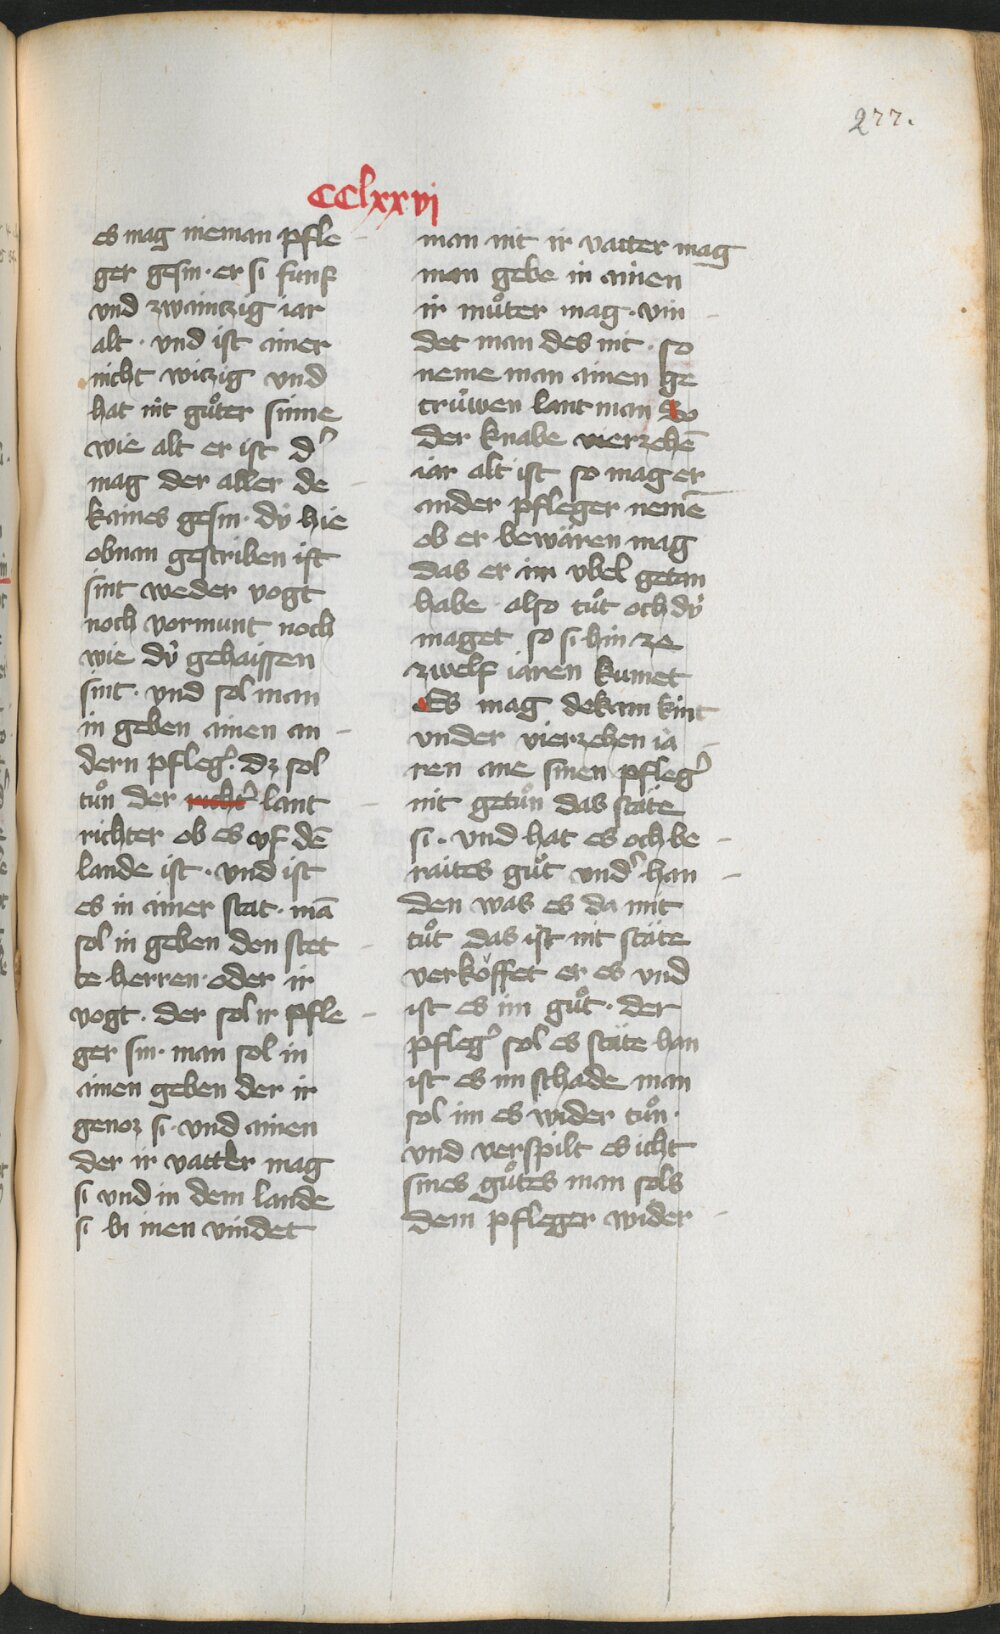 277.
CClxxvj
es mag nieman pfle
ger gesin · er si funf
vnd zwainczig iar
alt · vnd ist ainer
nicht wiczig vnd
hat nit guͦter sinne
wie alt er ist d'
mag der aller de
kaines gesin · dv̍ hie
obnan gescriben ist
sint weder vogt
noch vormunt noch
wie dv̍ gehaissen
sint · vnd sol man
in geben ainen an
dern pfleg' · dz sol
tuͦn der richt' lant
richter ob es vf dē
lande ist · vnd ist
es in ainer stat · mā
sol in geben den stet
te herren · oder ir
vogt · der sol ir pfle
ger sin · man sol in
ainen geben der ir
genoz si · vnd ainen
der ir vatter mag
si vnd in dem lande
si bi inen vindet
man nit ir vatter mag
man gebe in ainen
ir muͦter mag · vin
det man des nit · so
neme man ainen ge
trv̍wen lant man So
der knabe vierzehē
iar alt ist so mag er
ander pfleger nemē
ob er bewären mag
das er im vbel getan
habe · also tuͦt och dv̍
maget so si hin ze
zwelf iaren kumet
Es mag dekain kint
vnder vierzehen ia
ren ane sinen pfleg'
nit getuͦn das stäte
si · vnd hat es och be
raites guͦt vnd' han
den was es da mit
tuͦt das ist nit stäte
verköffet er es vnd
ist es im guͦt · der
pfleg' sol es stäte han
ist es im schade man
sol im es wider tuͦn ·
vnd verspilt es icht
sines guͦtes man sols
dem pfleger wider